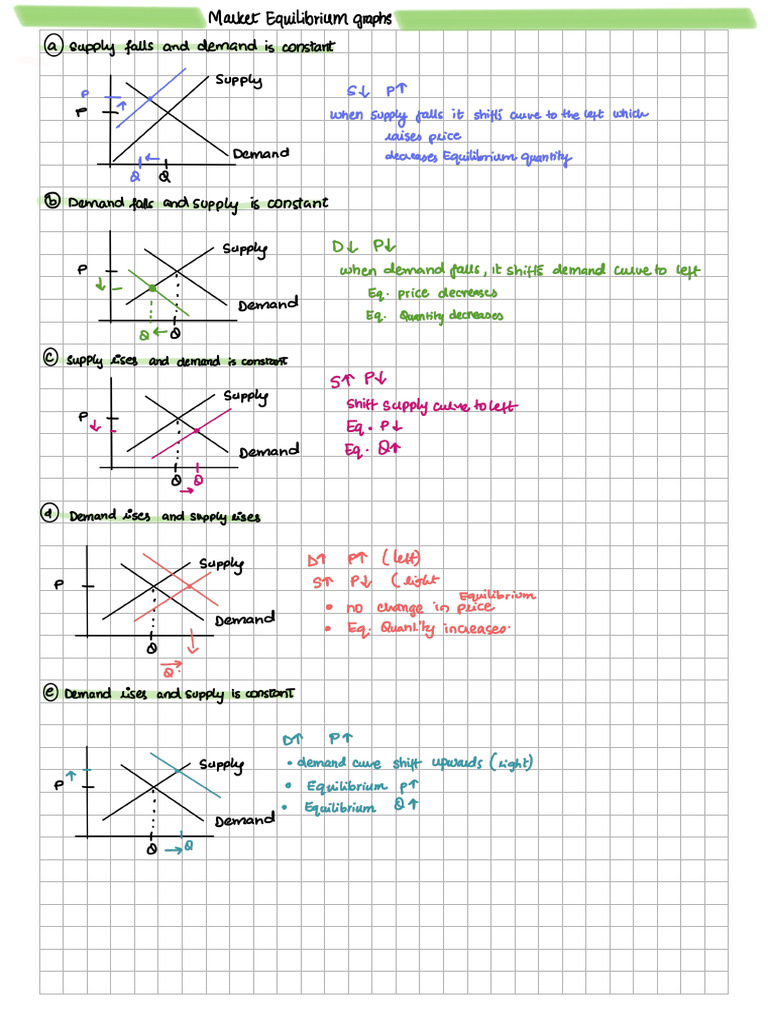 Market Equilibrium graphs
ⓐ Supply falls and demand is constant
Supply
P
P
Demand
Q ← Q
S↓ P↑
when supply falls it shifts curve to the left which
raises price
decreases Equilibrium quantity
ⓑ Demand falls and supply is constant
Supply
P
Demand
Q ← Q
D↓ P↓
when demand falls, it shifts demand curve to left
Eq. price decreases
Eq. Quantity decreases
ⓒ Supply rises and demand is constant
Supply
P
Demand
Q Q
→
S↑ P↓
Shift supply curve to left
Eq. P↓
Eq. Q↑
ⓓ Demand rises and supply rises
Supply
P
Demand
Q
Q
D↑ P↑ (left)
S↑ P↓ (right
Equilibrium
• no change in price
• Eq. Quantity increases.
ⓔ Demand rises and supply is constant
Supply
P
Demand
Q → Q
D↑ P↑
• demand curve shift upwards (right)
• Equilibrium P↑
• Equilibrium Q↑